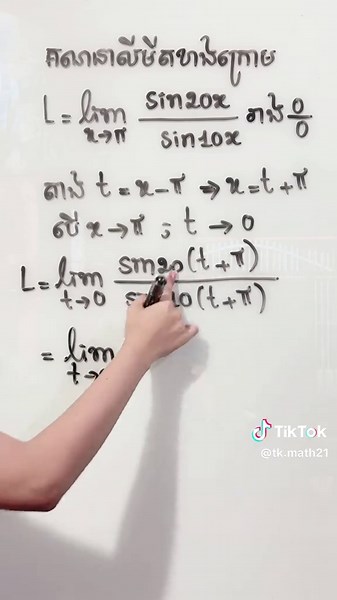 គណនាលីមីតខាងក្រោម
L = lim x→π sin20x / sin10x រាង 0/0
តាង t = x-π ⇒ x = t+π
បើ x→π ; t→0
L = lim t→0 sin20(t+π) / 10(t+π)
= lim
TikTok
@tk.math21